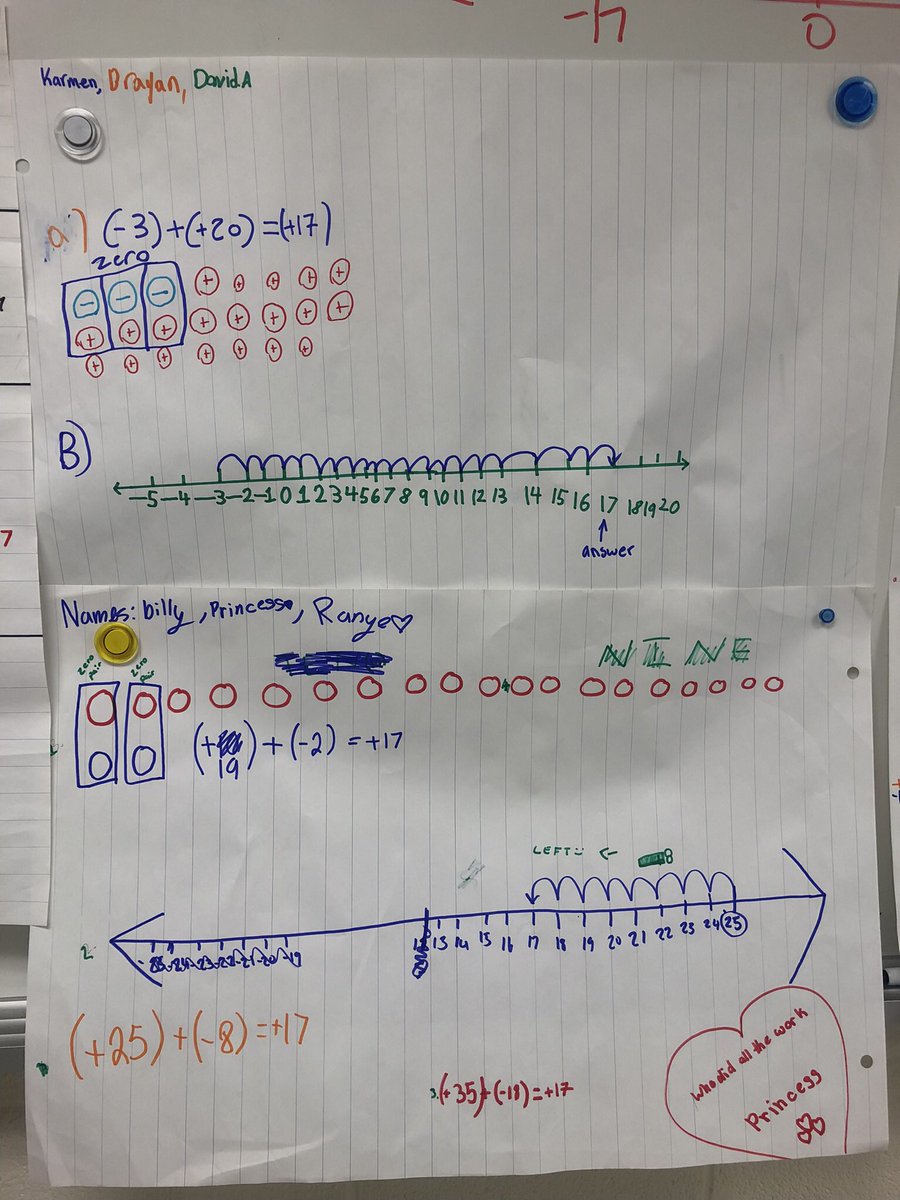 -17 0
Karmen, Drayan, David A
a) (-3)+(+20)=(+17)
zero
- - - + + + + +
+ + + + + + + +
+ + + + + + +
B)
-5 -4 -3 -2 -1 0 1 2 3 4 5 6 7 8 9 10 11 12 13 14 15 16 17 18 19 20
↑
answer
7
Names: billy, Princess, Ranye♡
zero pair zero pair
(+19) + (-2) = +17
LEFT: ← 8
2.
-24 -23 -22 -21 -20 -19 13 14 15 16 17 18 19 20 21 22 23 24 25
(+25)+(-8)=+17
3. (+35)+(-18)=+17
Who did all the work
Princess